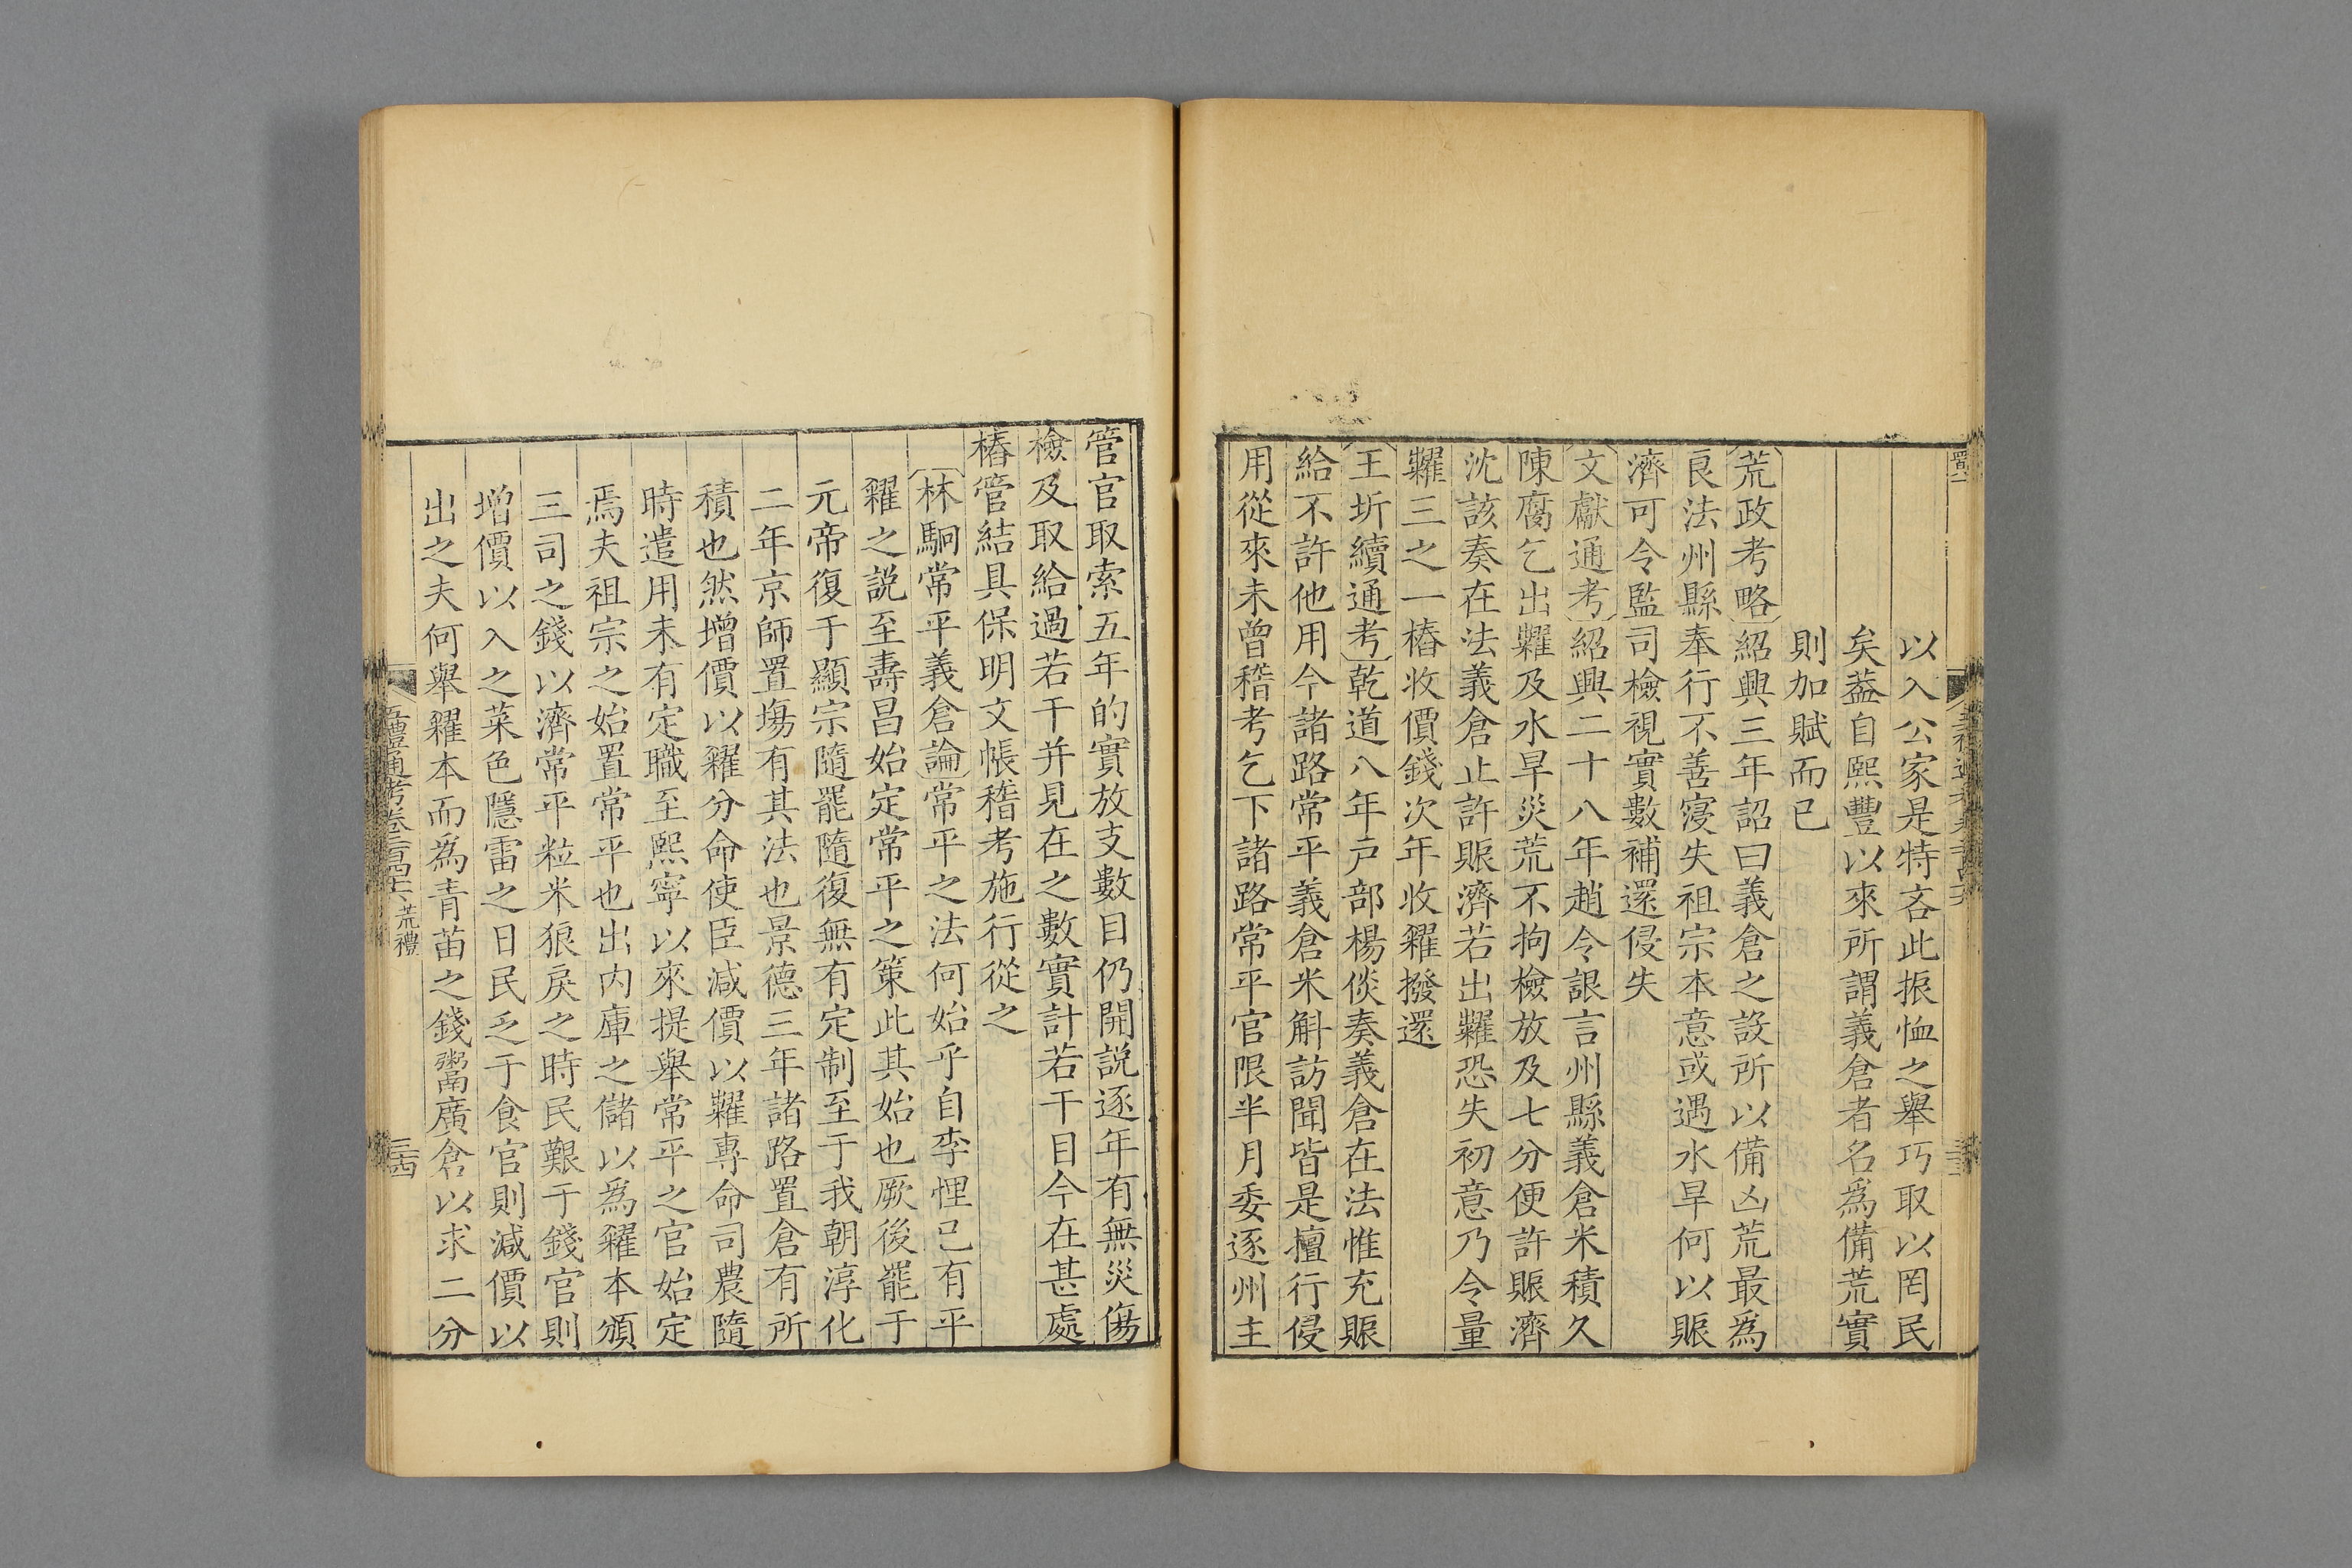 以入公家是特吝此振恤之舉巧取以罔民
矣葢自熙豐以來所謂義倉者名爲備荒實
則加賦而已
荒政考略紹興三年詔曰義倉之設所以備凶荒最爲
良法州縣奉行不善寖失祖宗本意或遇水旱何以賑
濟可令監司檢視實數補還侵失
文獻通考紹興二十八年趙令詪言州縣義倉米積久
陳腐乞出糶及水旱災荒不拘檢放及七分便許賑濟
沈該奏在法義倉止許賑濟若出糶恐失初意乃令量
糶三之一樁收價錢次年收糴撥還
王圻續通考乾道八年戸部楊倓奏義倉在法惟充賑
給不許他用今諸路常平義倉米斛訪聞皆是擅行侵
用從來未曾稽考乞下諸路常平官限半月委逐州主
管官取索五年的實放支數目仍開說逐年有無災傷
檢及取給過若干并見在之數實計若干目今在甚處
樁管結具保明文帳稽考施行從之
林駉常平義倉論常平之法何始乎自李悝已有平
糴之説至壽昌始定常平之策此其始也厥後罷于
元帝復于顯宗隨罷隨復無有定制至于我朝淳化
二年京師置塲有其法也景德三年諸路置倉有所
積也然增價以糴分命使臣減價以糶專命司農隨
時遣用未有定職至熙寧以來提舉常平之官始定
焉夫祖宗之始置常平也出内庫之儲以爲糴本頒
三司之錢以濟常平粒米狼戾之時民艱于錢官則
增價以入之菜色隱雷之日民乏于食官則減價以
出之夫何舉糴本而爲青苗之錢鬻廣倉以求二分
五禮通考卷二百四十六 荒禮
三十四